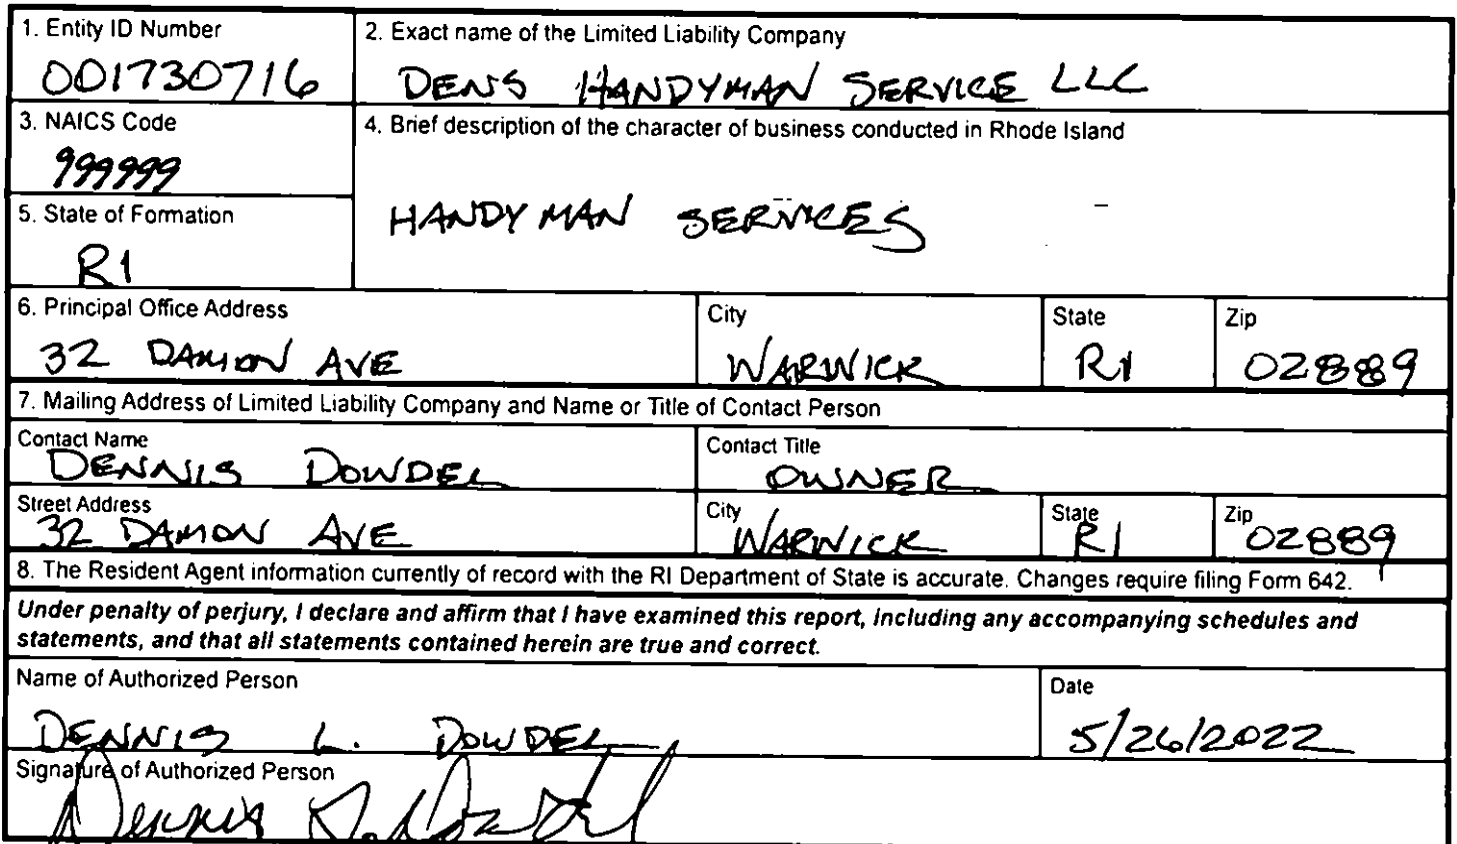 1. Entity ID Number
001730716
2. Exact name of the Limited Liability Company
DENS HANDYMAN SERVICE LLC
3. NAICS Code
999999
4. Brief description of the character of business conducted in Rhode Island
HANDYMAN SERVICES
5. State of Formation
RI
6. Principal Office Address
32 DAMON AVE
City
WARWICK
State
RI
Zip
02889
7. Mailing Address of Limited Liability Company and Name or Title of Contact Person
Contact Name
DENNIS DOWDEL
Contact Title
OWNER
Street Address
32 DAMON AVE
City
WARWICK
State
RI
Zip
02889
8. The Resident Agent information currently of record with the RI Department of State is accurate. Changes require filing Form 642.
Under penalty of perjury, I declare and affirm that I have examined this report, including any accompanying schedules and
statements, and that all statements contained herein are true and correct.
Name of Authorized Person
DENNIS L. DOWDEL
Date
5/26/2022
Signature of Authorized Person
Dennis L. Dowdel